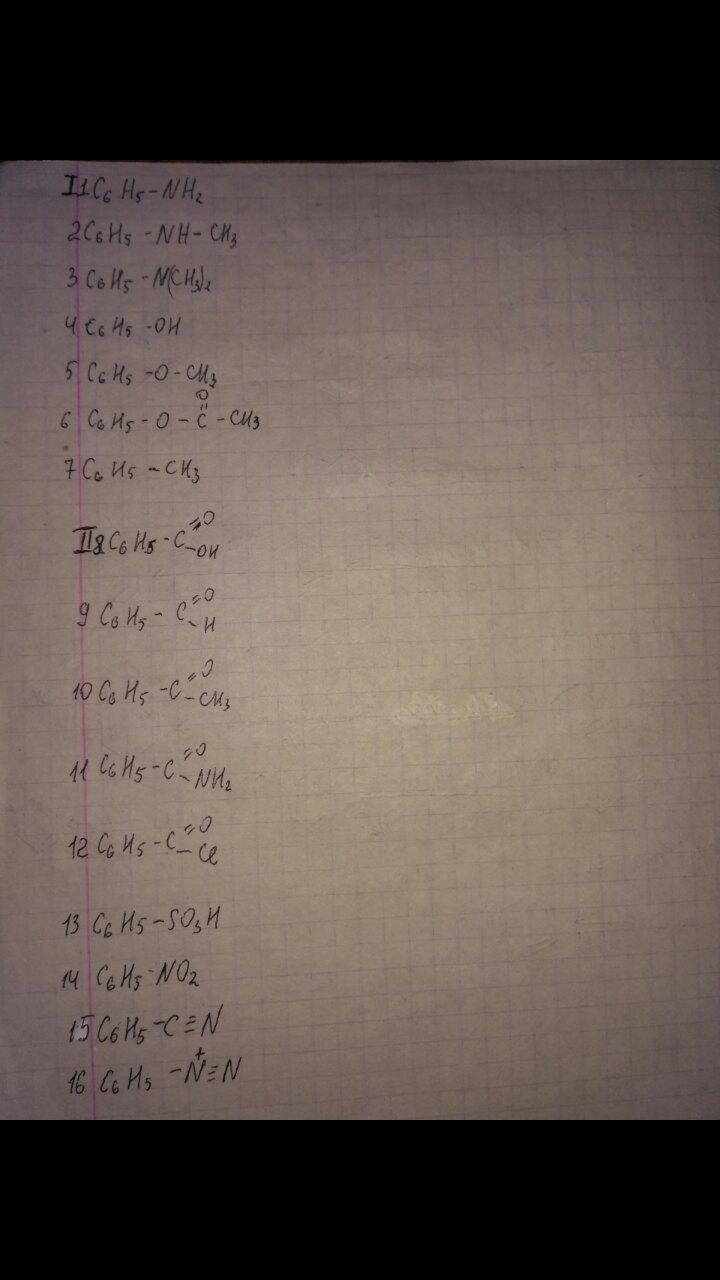 I 1 C6H5-NH2
2 C6H5-NH-CH3
3 C6H5-N(CH3)2
4 C6H5-OH
5 C6H5-O-CH3
O
6 C6H5-O-C-CH3
7 C6H5-CH3
II 8 C6H5-C=O
-OH
9 C6H5-C=O
-H
10 C6H5-C=O
-CH3
11 C6H5-C=O
-NH2
12 C6H5-C=O
-Cl
13 C6H5-SO3H
14 C6H5-NO2
15 C6H5-C≡N
16 C6H5-N⁺≡N